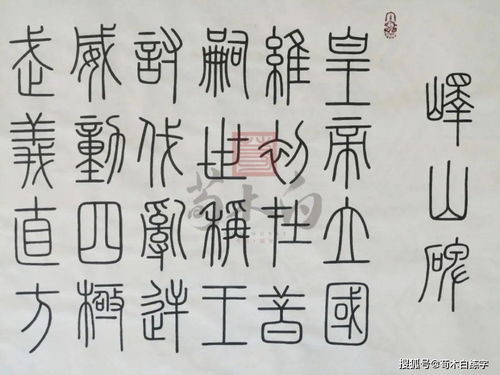 嶧山碑
皇帝立國
維初在昔
嗣世稱王
討伐亂逆
威動四極
武義直方
荀木白
搜狐号@荀木白练字